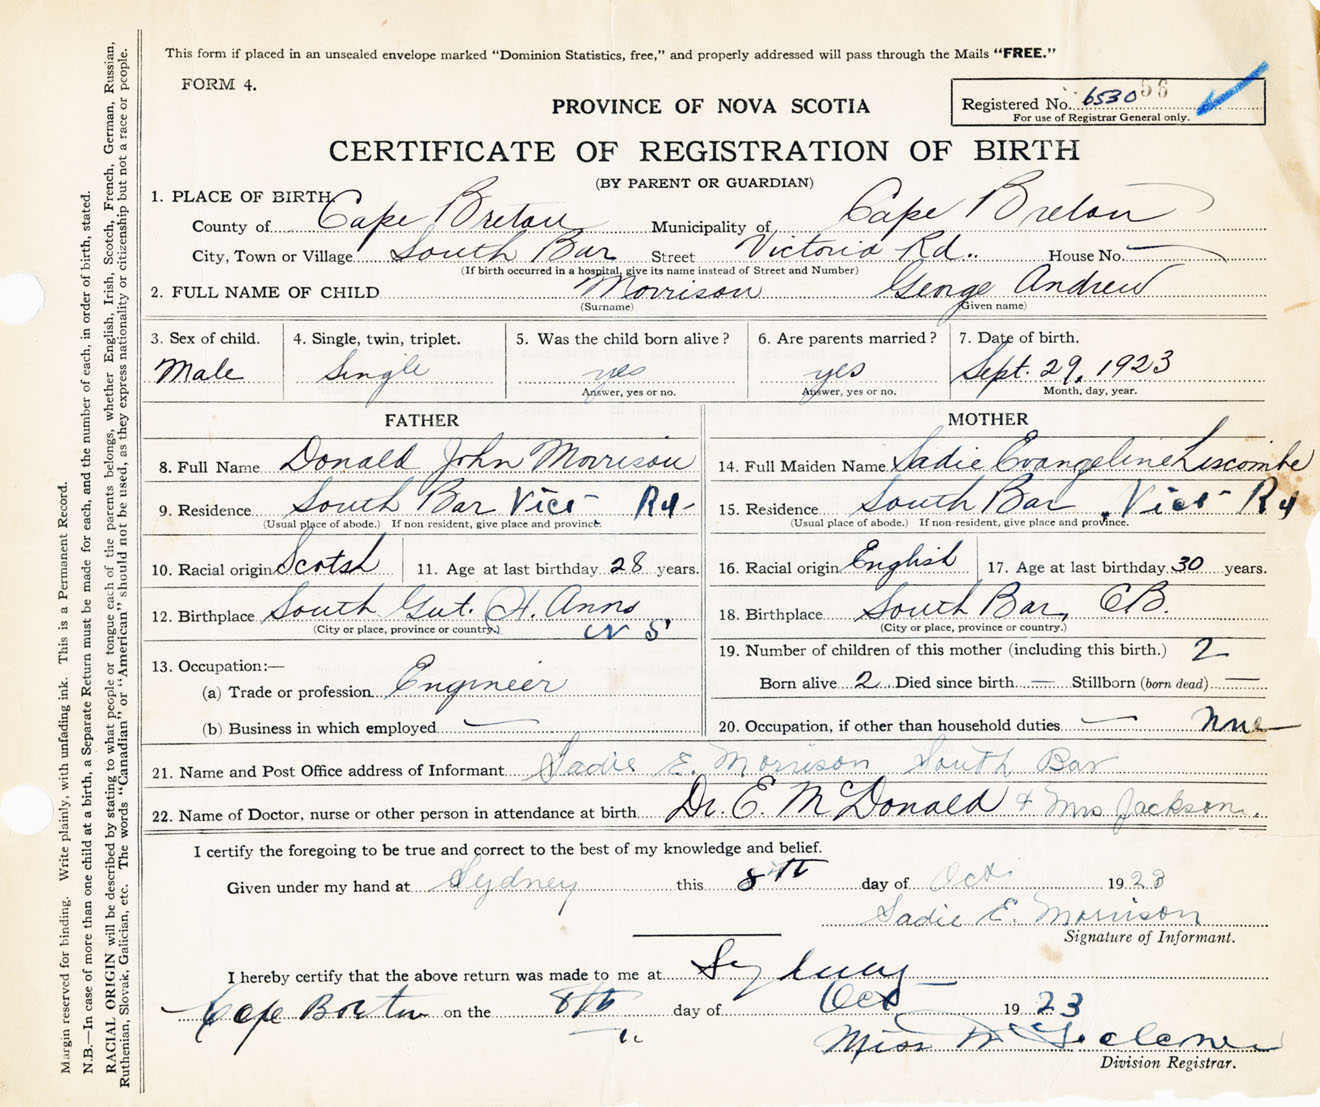 This form if placed in an unsealed envelope marked "Dominion Statistics, free," and properly addressed will pass through the Mails "FREE."
FORM 4.
PROVINCE OF NOVA SCOTIA
Registered No. 6530 58
For use of Registrar General only.
CERTIFICATE OF REGISTRATION OF BIRTH
(BY PARENT OR GUARDIAN)
1. PLACE OF BIRTH
County of Cape Breton Municipality of Cape Breton
City, Town or Village South Bar Street Victoria Rd. House No. —
(If birth occurred in a hospital, give its name instead of Street and Number)
2. FULL NAME OF CHILD Morrison George Andrew
(Surname) (Given name)
3. Sex of child. 4. Single, twin, triplet. 5. Was the child born alive? 6. Are parents married? 7. Date of birth.
Male Single yes yes Sept. 29, 1923
Answer, yes or no. Answer, yes or no. Month, day, year.
FATHER MOTHER
8. Full Name Donald John Morrison 14. Full Maiden Name Sadie Evangeline Liscombe
9. Residence South Bar Vict- Rd- 15. Residence South Bar, Vict- Rd
(Usual place of abode.) If non resident, give place and province. (Usual place of abode.) If non-resident, give place and province.
10. Racial origin Scotsh 11. Age at last birthday 28 years. 16. Racial origin English 17. Age at last birthday 30 years.
12. Birthplace South Gut. St. Anns 18. Birthplace South Bar, C.B.
(City or place, province or country.) N S (City or place, province or country.)
13. Occupation:— 19. Number of children of this mother (including this birth.) 2
(a) Trade or profession Engineer Born alive 2 Died since birth — Stillborn (born dead) —
(b) Business in which employed — 20. Occupation, if other than household duties — None
21. Name and Post Office address of Informant Sadie E. Morrison South Bar
22. Name of Doctor, nurse or other person in attendance at birth Dr. E. McDonald & Mrs Jackson.
I certify the foregoing to be true and correct to the best of my knowledge and belief.
Given under my hand at Sydney this 8th day of Oct. 1923
Sadie E. Morrison
Signature of Informant.
I hereby certify that the above return was made to me at Sydney
Cape Breton on the 8th day of Oct 1923
Miss
Division Registrar.
Margin reserved for binding. Write plainly, with unfading ink. This is a Permanent Record.
N.B.—In case of more than one child at a birth, a Separate Return must be made for each, and the number of each, in order of birth, stated.
RACIAL ORIGIN will be described by stating to what people or tongue each of the parents belongs, whether English, Irish, Scotch, French, German, Russian,
Ruthenian, Slovak, Galician, etc. The words "Canadian" or "American" should not be used, as they express nationality or citizenship but not a race or people.